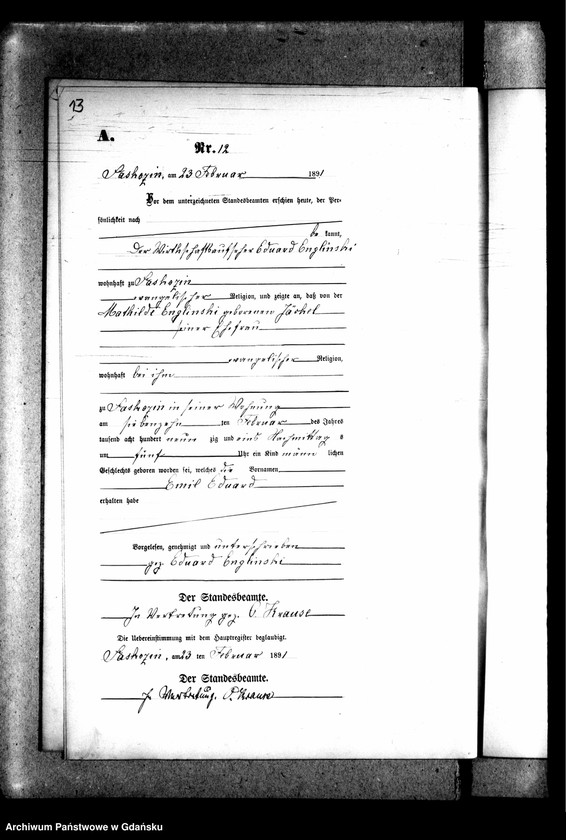 13
A.
Nr. 12
Saskozin, am 23 Februar 1891
Vor dem unterzeichneten Standesbeamten erschien heute, der Per-
sönlichkeit nach
be kannt,
Der Wirthschaftsaufseher Eduard Englinski
wohnhaft zu Saskozin
evangelischer Religion, und zeigte an, daß von der
Mathilde Englinski geborenen Jäckel
seiner Ehefrau
evangelischer Religion,
wohnhaft bei ihm
zu Saskozin in seiner Wohnung
am siebenzehn ten Februar des Jahres
tausend acht hundert neun zig und eins Nachmittag s
um fünf Uhr ein Kind männ lichen
Geschlechts geboren worden sei, welches die Vornamen
Emil Eduard
erhalten habe
Vorgelesen, genehmigt und unterschrieben
gez. Eduard Englinski
Der Standesbeamte.
In Vertretung gez. Krause
Die Uebereinstimmung mit dem Hauptregister beglaubigt.
Saskozin, am 23 ten Februar 1891
Der Standesbeamte.
In Vertretung. Krause
Archiwum Państwowe w Gdańsku